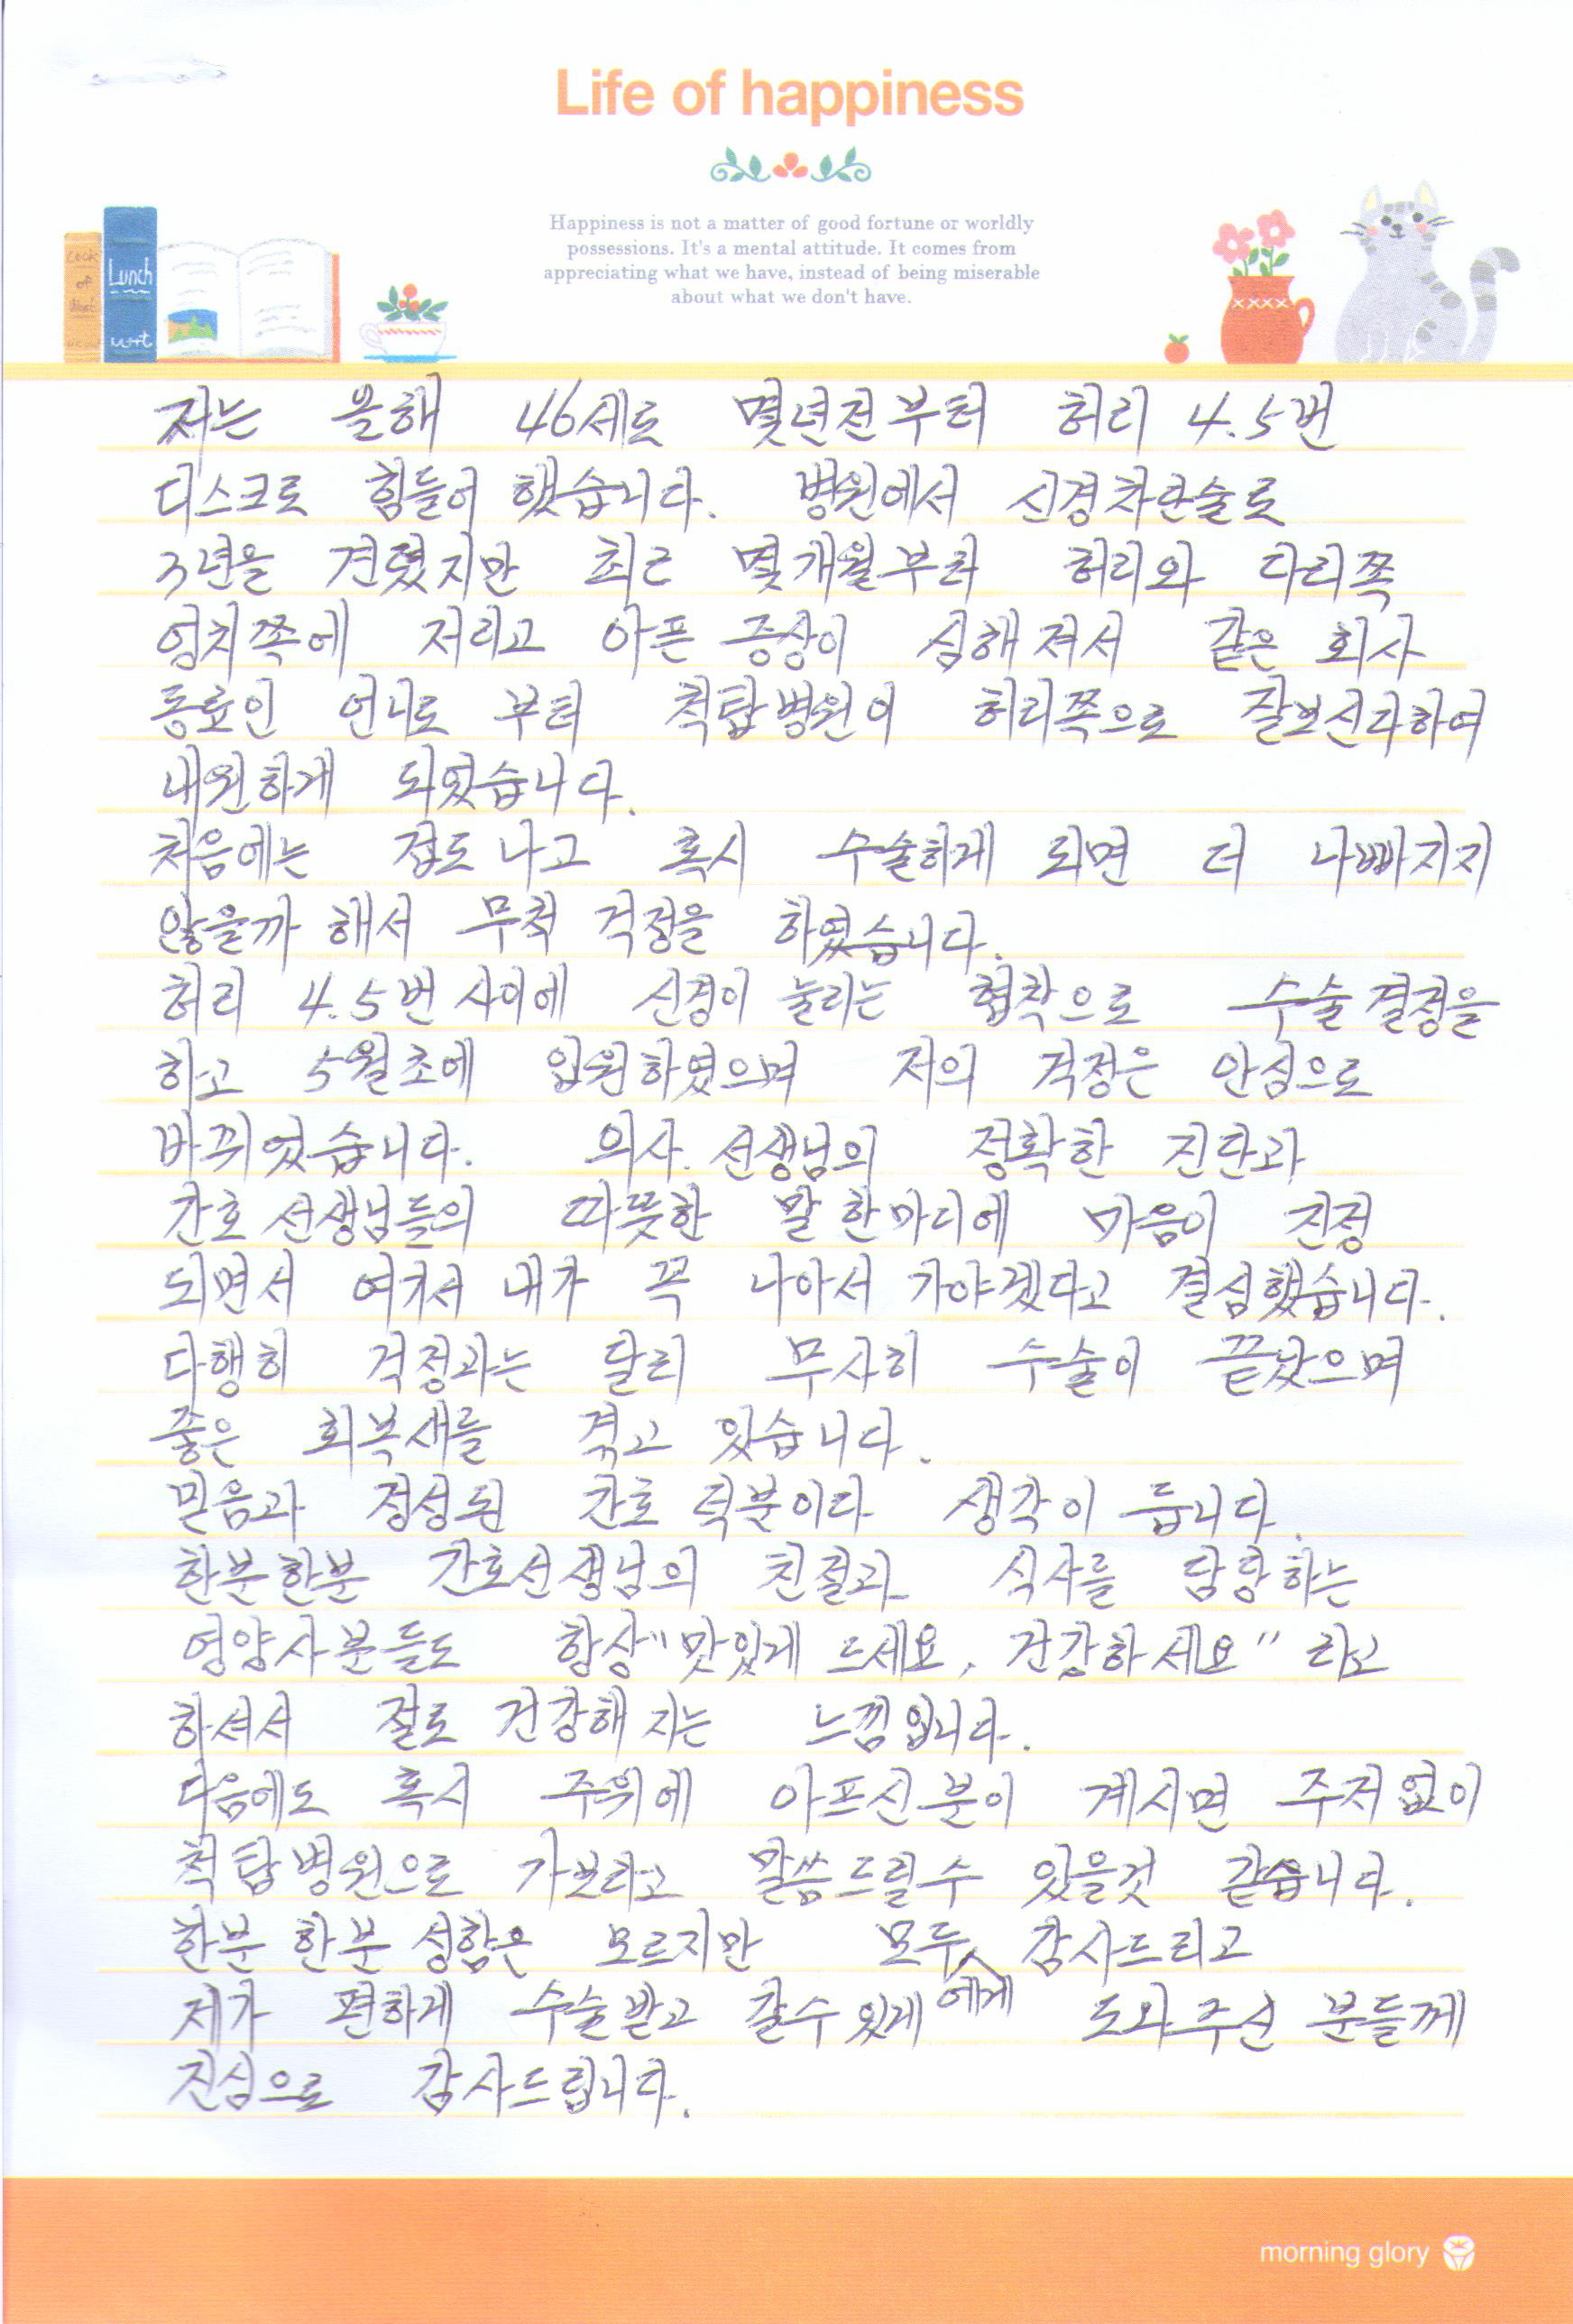 Life of happiness
Happiness is not a matter of good fortune or worldly
possessions. It's a mental attitude. It comes from
appreciating what we have, instead of being miserable
about what we don't have.
Lunch
저는 올해 46세로 몇년전부터 허리 4.5번
디스크로 힘들어 했습니다. 병원에서 신경차단술로
3년을 견뎠지만 최근 몇개월부터 허리와 다리쪽
엉치쪽에 저리고 아픈 증상이 심해져서 같은 회사
동료인 언니로 부터 척탑병원이 허리쪽으로 잘보신다하여
내원하게 되었습니다.
처음에는 겁도 나고 혹시 수술하게 되면 더 나빠지지
않을까 해서 무척 걱정을 하였습니다.
허리 4.5번 사이에 신경이 눌리는 협착으로 수술 결정을
하고 5월초에 입원하였으며 저의 걱정은 안심으로
바뀌었습니다. 의사.선생님의 정확한 진단과
간호 선생님들의 따뜻한 말 한마디에 마음이 진정
되면서 여기서 내가 꼭 나아서 가야겠다고 결심했습니다.
다행히 걱정과는 달리 무사히 수술이 끝났으며
좋은 회복새를 겪고 있습니다.
믿음과 정성된 간호 덕분이다 생각이 듭니다.
한분한분 간호선생님의 친절과 식사를 담당하는
영양사분들도 항상"맛있게 드세요, 건강하세요" 라고
하셔서 절로 건강해 지는 느낌입니다.
다음에도 혹시 주위에 아프신분이 계시면 주저없이
척탑병원으로 가보라고 말씀드릴수 있을것 같습니다.
한분 한분 성함은 모르지만 모두에게 감사드리고
제가 편하게 수술받고 갈수있게 도와주신 분들께
진심으로 감사드립니다.
morning glory